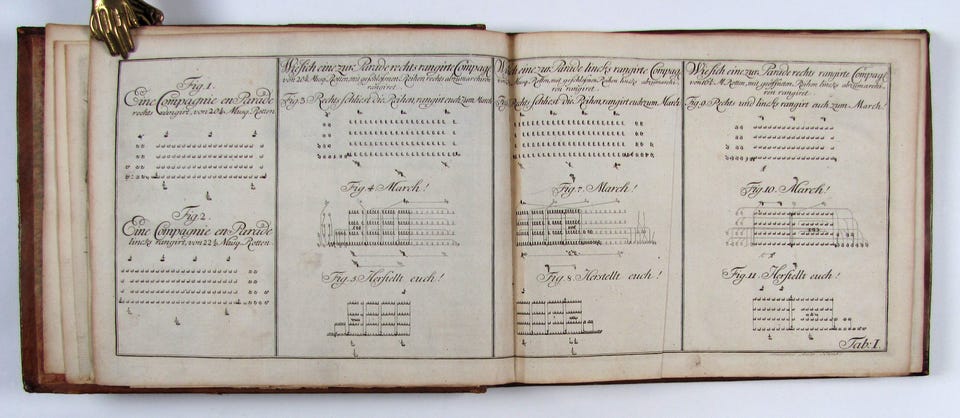 Fig. 1.
Eine Compagnie en Parade
rechts rangirt, von 20¾ Musq. Rotten
Fig. 2.
Eine Compagnie en Parade
lincks rangirt, von 22¾ Musq. Rotten
Wie sich eine zur Parade rechts rangirte Compag:
von 20¾ Musq. Rotten, mit geschlossnen Reihen rechts abzumarchiren
rangiret.
Fig. 3. Rechts schliest die Reihen, rangirt euch zum March!
Fig. 4 March!
Fig. 5. Herstellt euch!
Wie sich eine zur Parade lincks rangirte Compag:
Musq. Rotten, mit geschlossnen Reihen lincks abzumarchi-
ren rangiret.
Rechts schliest die Reihen, rangirt euch zum March!
Fig. 7. March!
Fig. 8. Herstellt euch!
Wie sich eine zur Parade rechts rangirte Compag:
von 16½ M. Rotten, mit geöffneten Reihen lincks abzumarchi-
ren rangiret.
Fig. 9. Rechts und lincks rangirt euch zum March!
Fig. 10. March!
Fig. 11. Herstellt euch!
Tab: I.